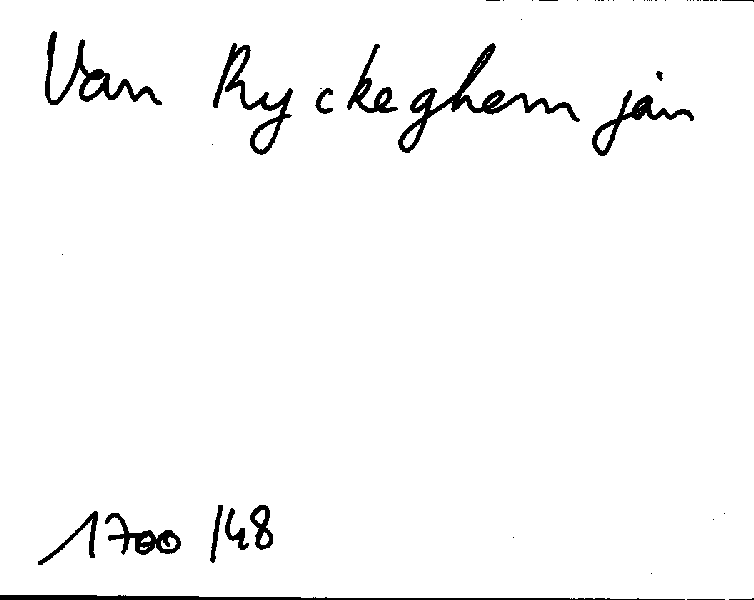 Van Ryckeghem jan
1700/48